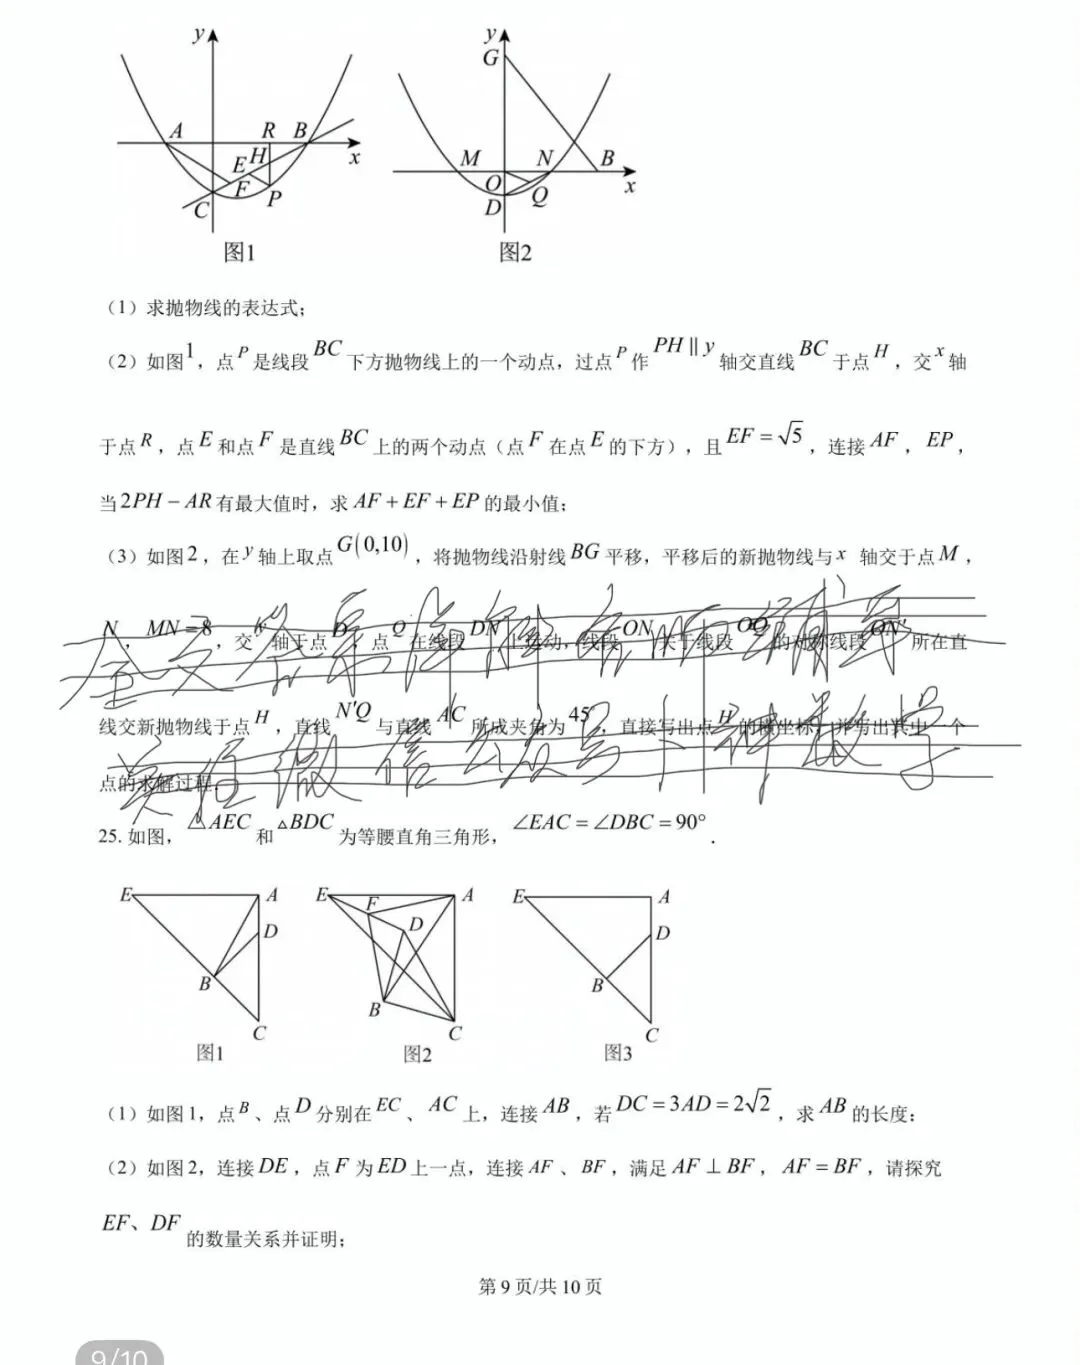 y
A
R
B
H
x
E
F
P
C
图1
y
G
M
N
B
O
x
D
Q
图2
（1）求抛物线的表达式；
（2）如图1，点P是线段BC下方抛物线上的一个动点，过点P作PH∥y轴交直线BC于点H，交x轴
于点R，点E和点F是直线BC上的两个动点（点F在点E的下方），且EF=√5，连接AF，EP，
当2PH−AR有最大值时，求AF+EF+EP的最小值；
（3）如图2，在y轴上取点G(0,10)，将抛物线沿射线BG平移，平移后的新抛物线与x 轴交于点M，
N，MN=8，交y轴于点D，点Q在线段DN上运动，线段ON关于线段OQ的对称线段ON'所在直
线交新抛物线于点H，直线N'Q与直线AC所成夹角为45°，直接写出点H的横坐标，并写出其中一个
点的求解过程．
25. 如图，△AEC和△BDC为等腰直角三角形，∠EAC=∠DBC=90°．
E
A
D
B
C
图1
E
F
A
D
B
C
图2
E
A
D
B
C
图3
（1）如图1，点B、点D分别在EC、AC上，连接AB，若DC=3AD=2√2，求AB的长度；
（2）如图2，连接DE，点F为ED上一点，连接AF、BF，满足AF⊥BF，AF=BF，请探究
EF、DF的数量关系并证明；
第 9 页/共 10 页
9/10